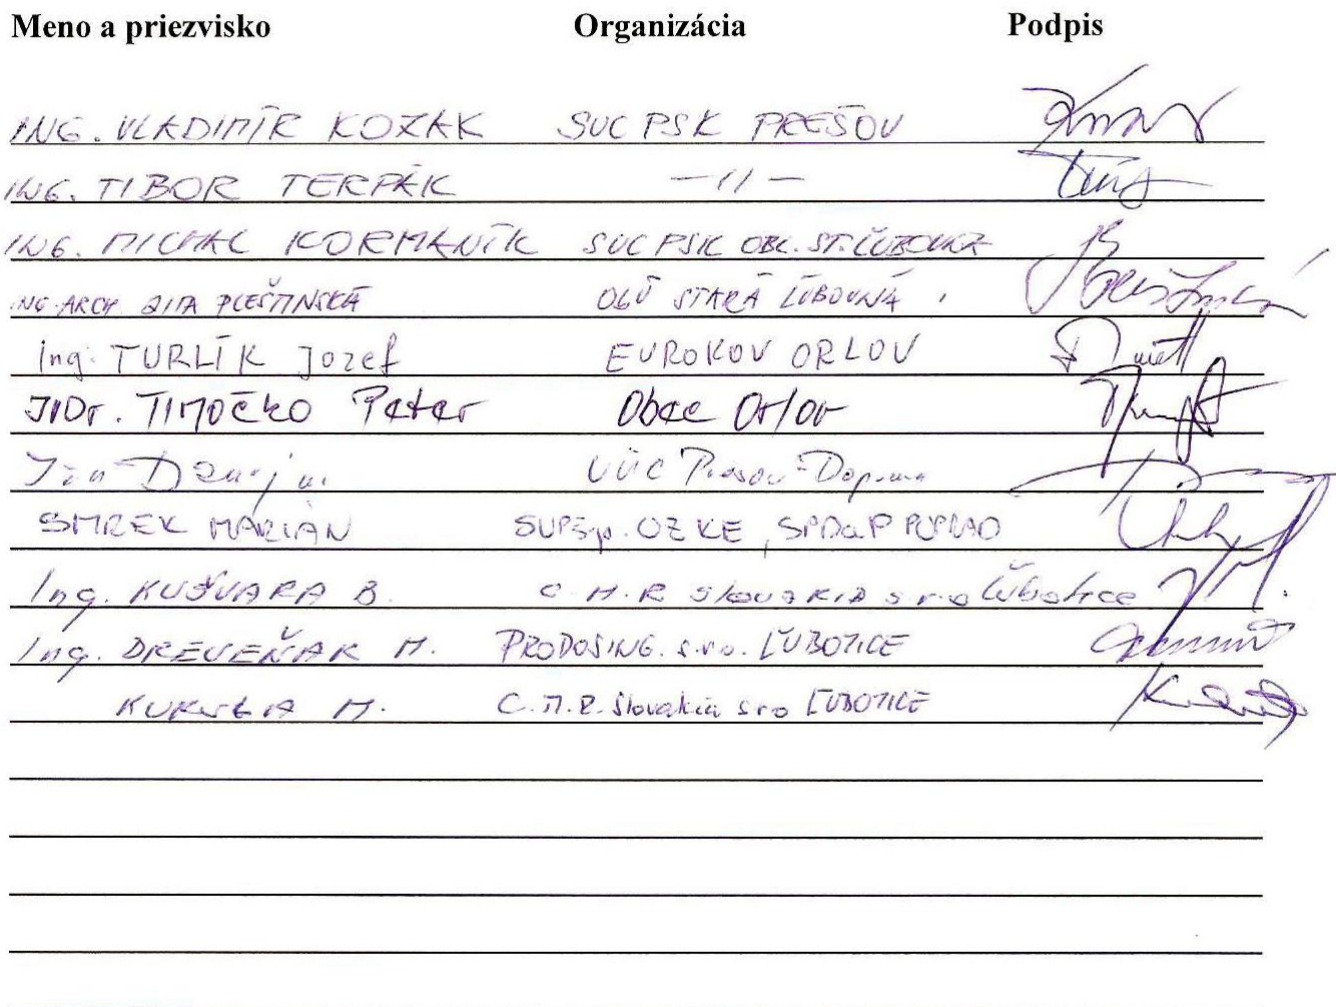 Meno a priezvisko Organizácia Podpis
ING. VLADIMÍR KOZÁK SUC PSK PREŠOV
ING. TIBOR TERPÁK —11—
ING. MICHAL KORMANÍK SUC PSK OBL. ST. ĽUBOVŇA
ING. ARCH. ZITA PLEŠTINSKÁ OCÚ STARÁ ĽUBOVŇA
Ing. TURLÍK Jozef EUROKOV ORLOV
JUDr. TIMOČKO Peter Obec Orlov
ÚVC Prešov Doprava
SMREK MARIÁN OZ KE, POPRAD
Ing. KUŠVARA B. C.M.R Slovakia s r o Ľubotice
Ing. DREVEŇAK M. PRODOSING. s.r.o. ĽUBOTICE
M. C.M.R. Slovakia s r o ĽUBOTICE